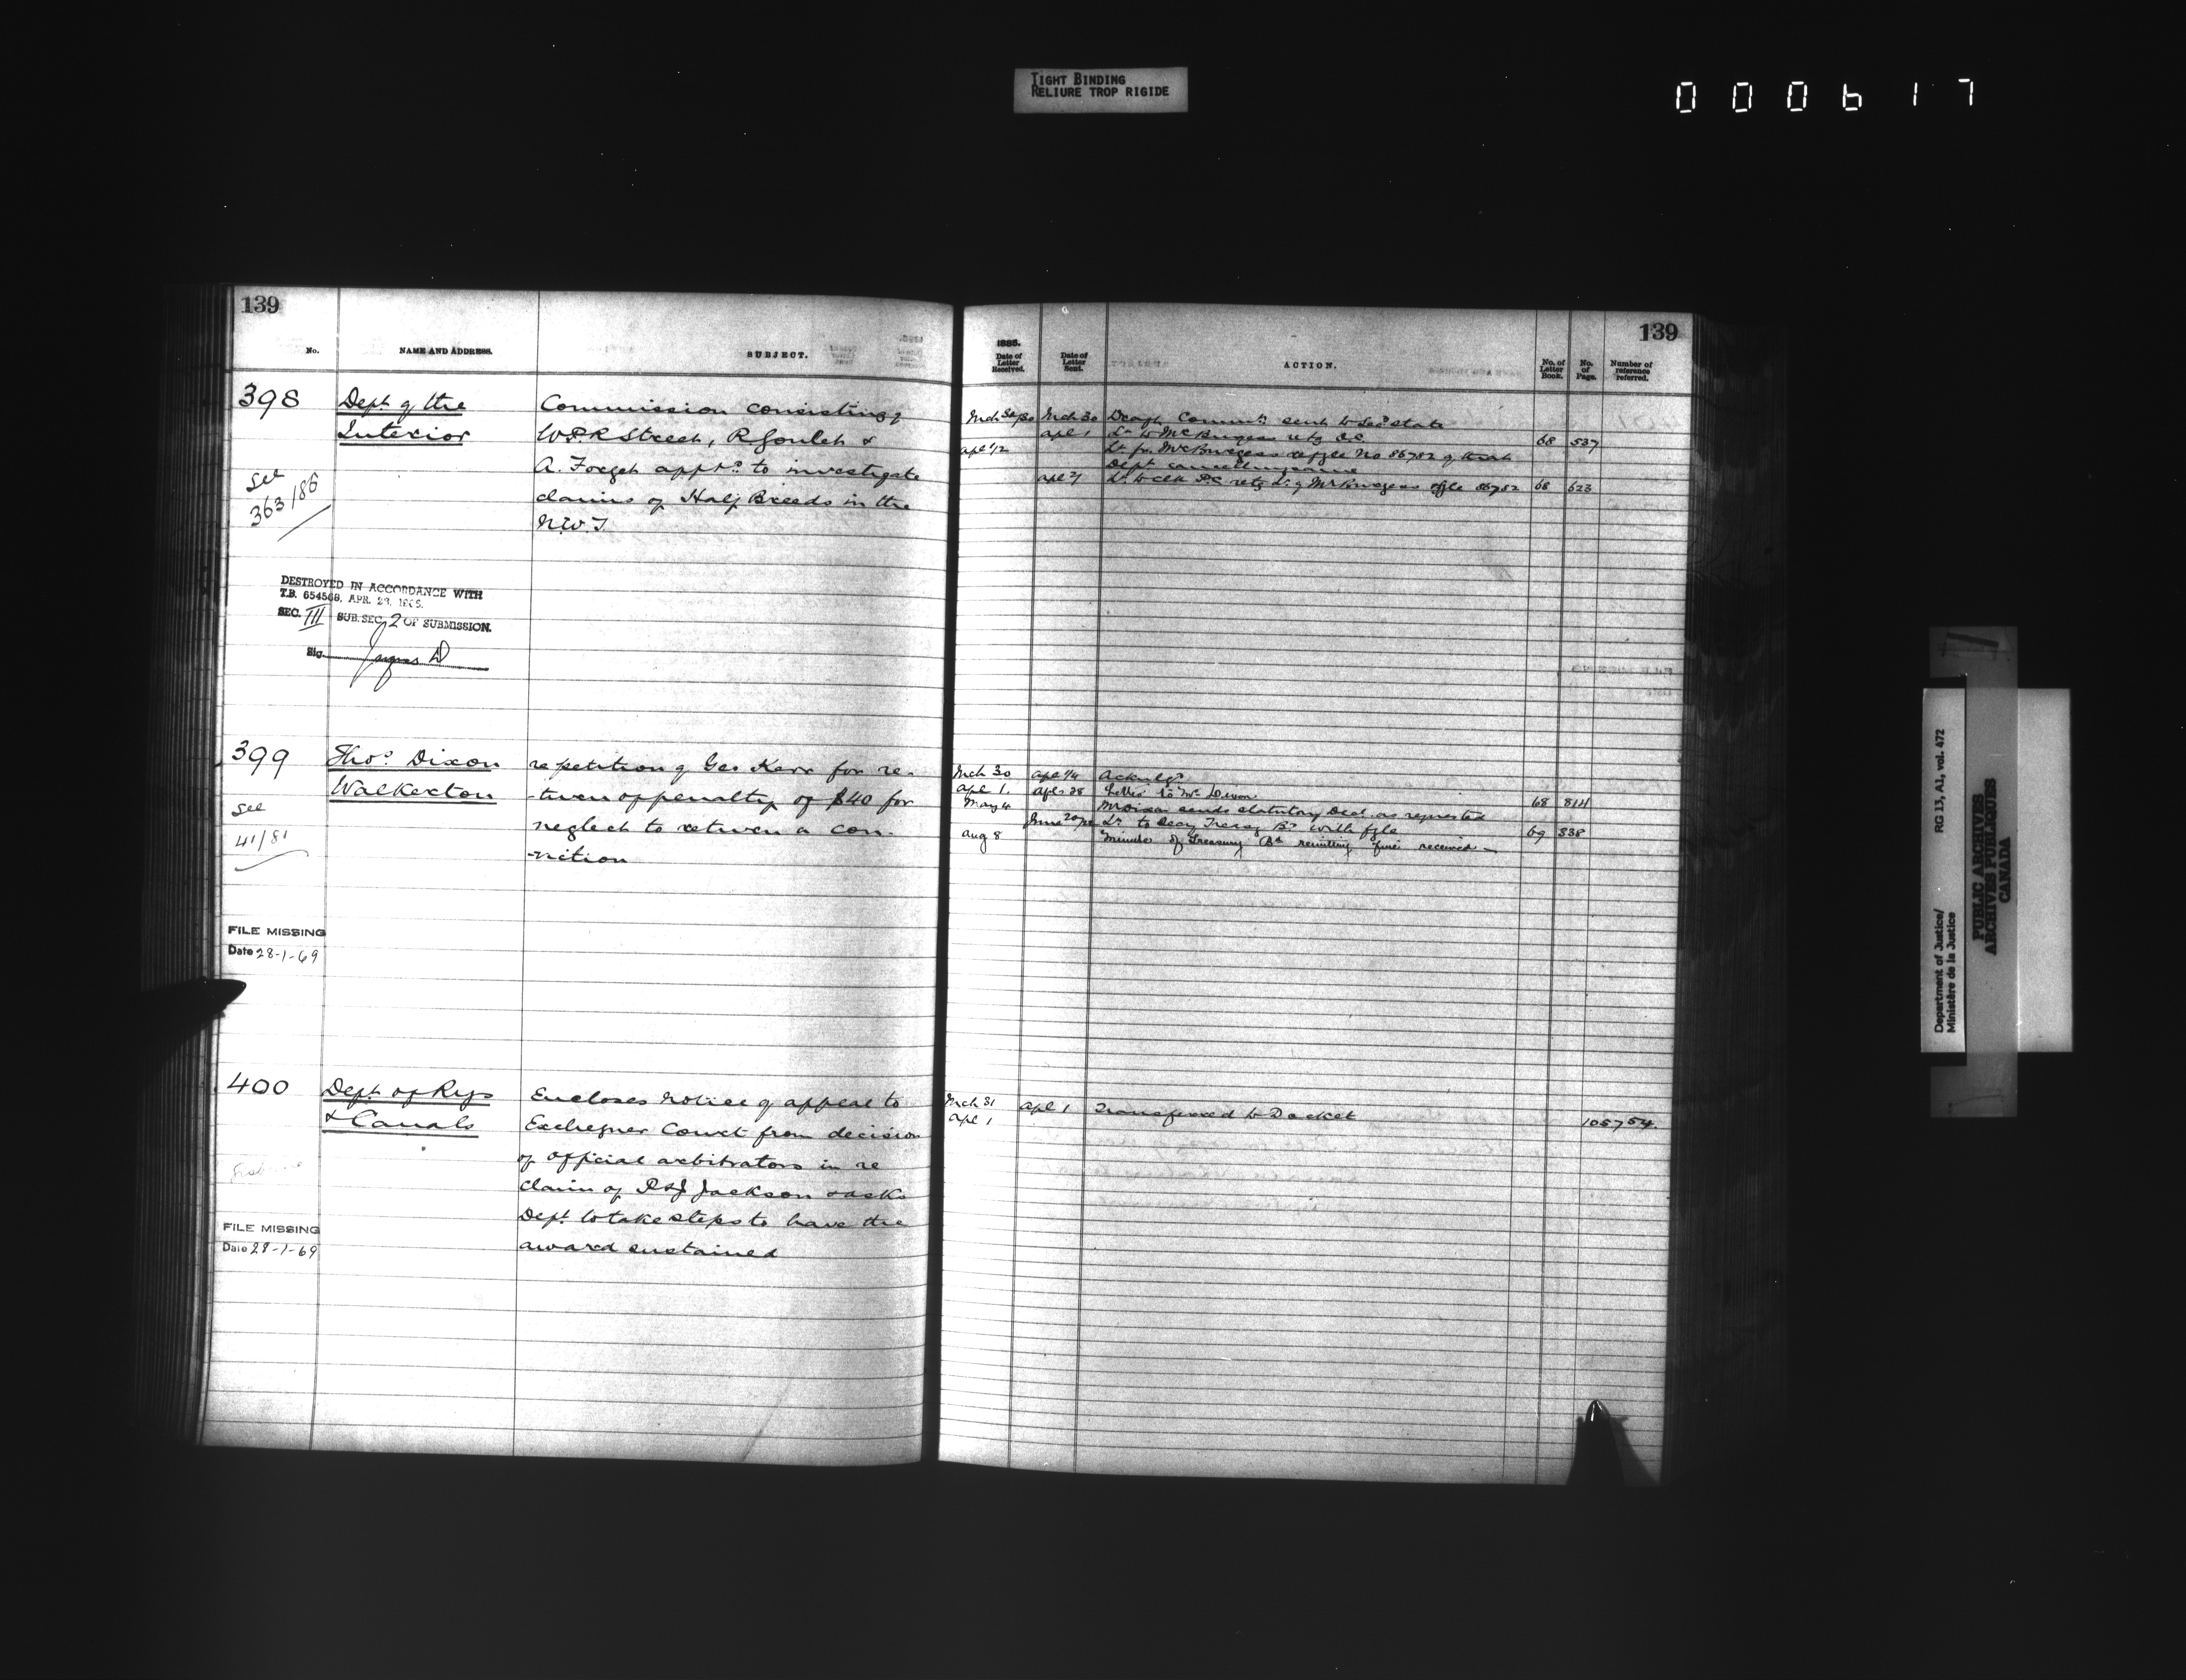 TIGHT BINDING
RELIURE TROP RIGIDE
000617
139
No.
NAME AND ADDRESS.
SUBJECT.
398
Dept. of the
Interior
Commission consisting of
W.P.R. Street, R. Goulet &
A. Forget apptd. to investigate
claims of Half Breeds in the
N.W.T.
See
363/86
DESTROYED IN ACCORDANCE WITH
T.B. 654568, APR. 23, 1965.
SEC. III SUB. SEC. 2 OF SUBMISSION.
Sig.
399
Thos. Dixon
Walkerton
re petition of Geo Kerr for re-
-turn of penalty of $40 for
neglect to return a con-
-viction
See
41/81
FILE MISSING
Date 28-1-69
400
Dept. of Rys
& Canals
Encloses notice of appeal to
Exchequer Court from decision
of official arbitrators in re
claim of P & J Jackson & asks
Dept. to take steps to have the
award sustained
FILE MISSING
Date 28-1-69
139
1885.
Date of Letter Received.
Date of Letter Sent.
ACTION.
No. of Letter Book.
No. of Page.
Number of reference referred.
Mch 30/30 Mch 30 Draft Commn. sent to Sec State
apl 1 Lr to Mr Burgess retg O.C. 68 537
apl 1/2 Lr. fr. Mr Burgess re fyle No 86782 of that
Dept cancelling same
apl 7 Lr to Clk P.C. retg Lr. of Mr Burgess & fyle 86782 68 623
Mch 30 apl 1/4 Acknlgd.
apl 1. apl 28 Letter to Mr Dixon 68 814
May 4 Mr Dixon sends statutory Decl. as requested
June 20 Lr. to Secy Treasy Bd with fyle 69 338
aug 8 Minute of Treasury Bd remitting fine received
Mch 31
apl 1 apl 1 Transferred to Docket 105754.
Department of Justice/
Ministère de la Justice
RG 13, A1, vol. 472
PUBLIC ARCHIVES
ARCHIVES PUBLIQUES
CANADA